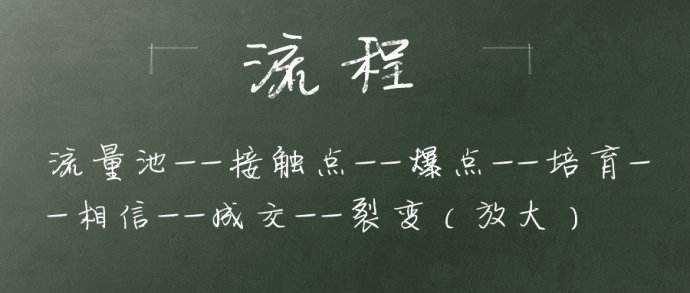 流程
流量池——接触点——爆点——培育—
—相信——成交——裂变（放大）